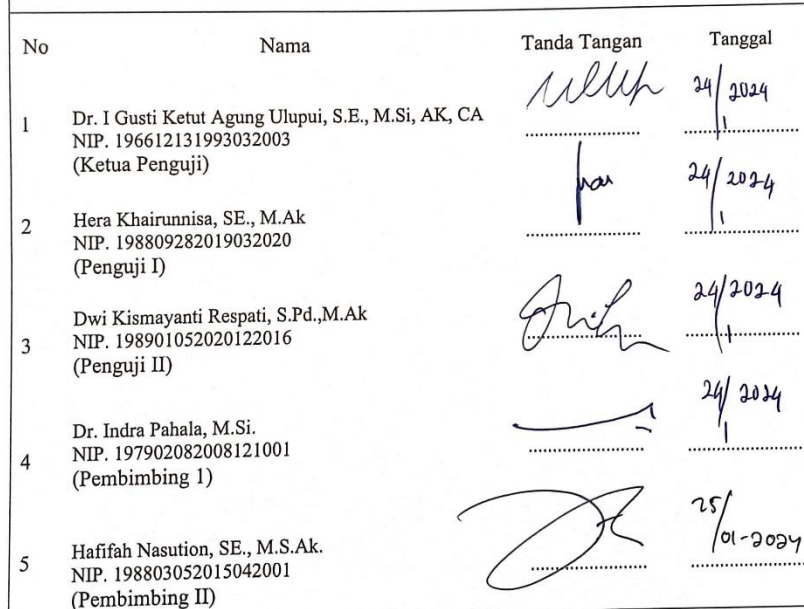 No Nama Tanda Tangan Tanggal
1 Dr. I Gusti Ketut Agung Ulupui, S.E., M.Si, AK, CA
NIP. 196612131993032003
(Ketua Penguji)
24/1 2024
2 Hera Khairunnisa, SE., M.Ak
NIP. 198809282019032020
(Penguji I)
24/1 2024
3 Dwi Kismayanti Respati, S.Pd.,M.Ak
NIP. 198901052020122016
(Penguji II)
24/1 2024
4 Dr. Indra Pahala, M.Si.
NIP. 197902082008121001
(Pembimbing 1)
24/1 2024
5 Hafifah Nasution, SE., M.S.Ak.
NIP. 198803052015042001
(Pembimbing II)
25/01-2024